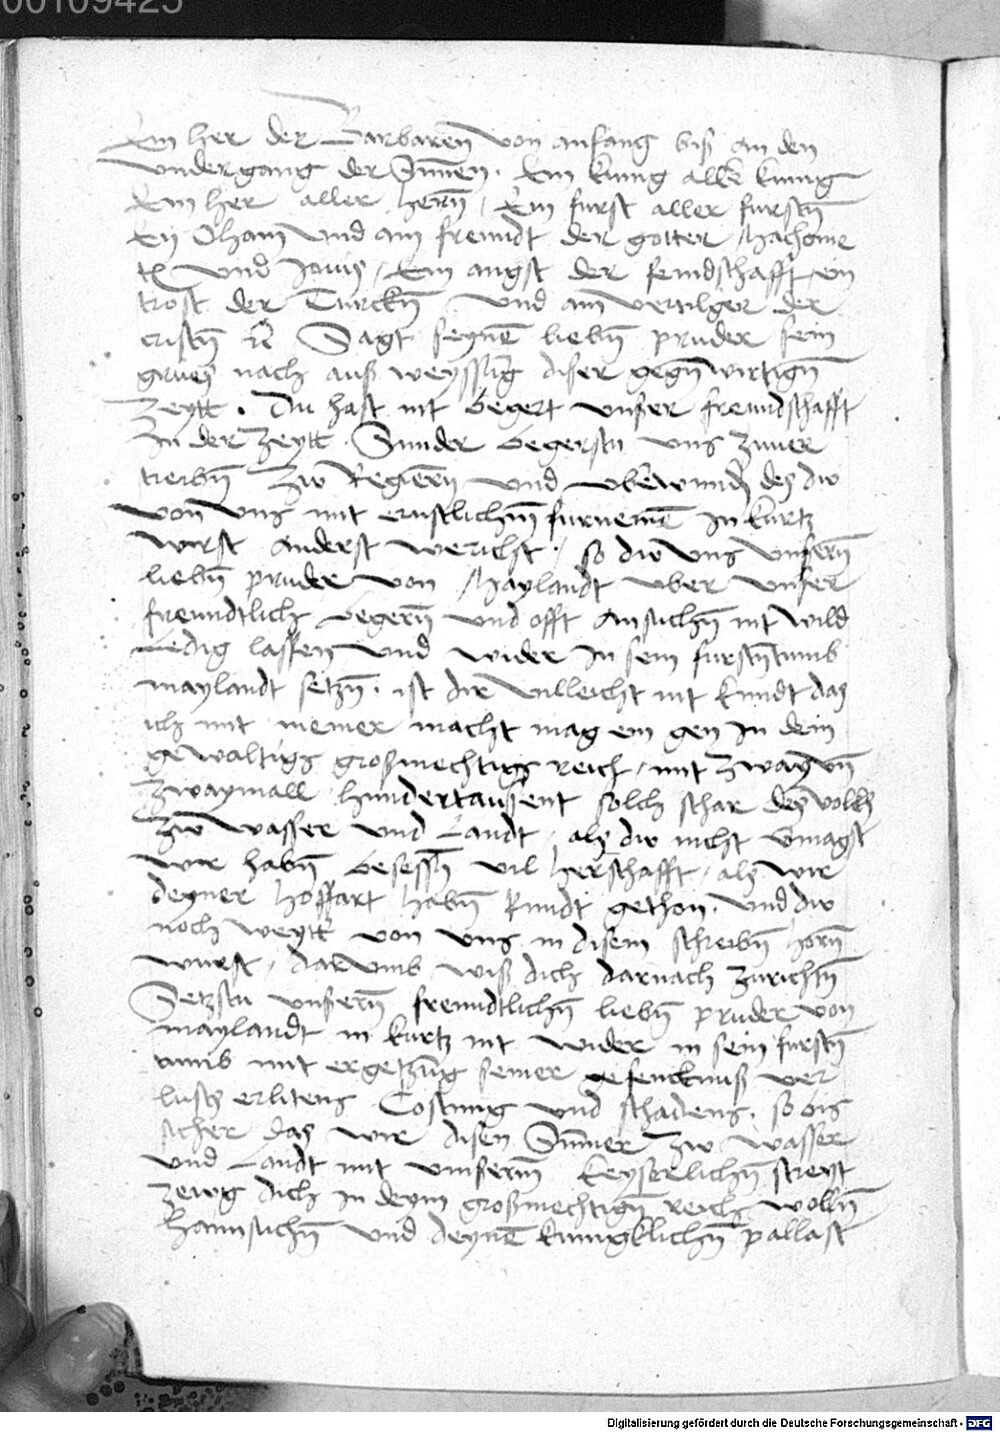 00109425
Ein her der Barbaren von anfang biß an den
vndergang der Sunnen. Ein kunig aller kunig
Ein her aller herñ / Ein furst aller furstñ
Ein Oham vnd ain freundt der gotter Machome
th vnd Jouis / Ein angst der feindschafft ein
trost der Turckñ vnd ain vertilger der
cristñ Sagt seynē liebñ pruder sein
grues nach auß weyssũg diser gegñwirtigñ
Zeytt. Du hast nit begert vnser freundschafft
In der Zeytt. Sunder begerstu vns zuuer
treibñ Zw Regierñ vnd vberwindñ des dw
von vns mit ernstlichñ furnemē In kurtz
wirst anderst bericht / so dw vns vnserñ
liebñ pruder von Maylandt vber vnser
freundtlich begerñ vnd offt ansuchñ nit wild
ledig lassen vnd wider In sein furstñtumb
maylandt setzñ. ist dir villeicht nit kundt das
ich mit meiner macht mag ein gen In dein
gewaltigs großmechtigs reich / mit Zwayñ
Zwaymall hundertausent solch schar des volcks
Zw wasser vnd Landt / als dw nicht vmagst
wir habñ besessñ vil herschafft / als wir
deyner hoffart habñ kundt gethon. vnd dw
noch weytt von vns in disem schreibñ horñ
wurst / darumb wiß dich darnach zurichtñ
Setzstu vnserñ freundtlichñ liebñ pruder von
maylandt in kurtz nit wider in sein furstñ
tumb mit ergetzũg seiner gefencknuß ver
lusts erlitens Costung vnd schadens. so bis
sicher das wir disen Sumer Zw wasser
vnd Landt mit vnnserm keyserlichñ streyt
zewg dich in deym großmechtigñ reich wollñ
haimsuchñ vnd deynē kunigklichñ pallast
Digitalisierung gefördert durch die Deutsche Forschungsgemeinschaft - DFG